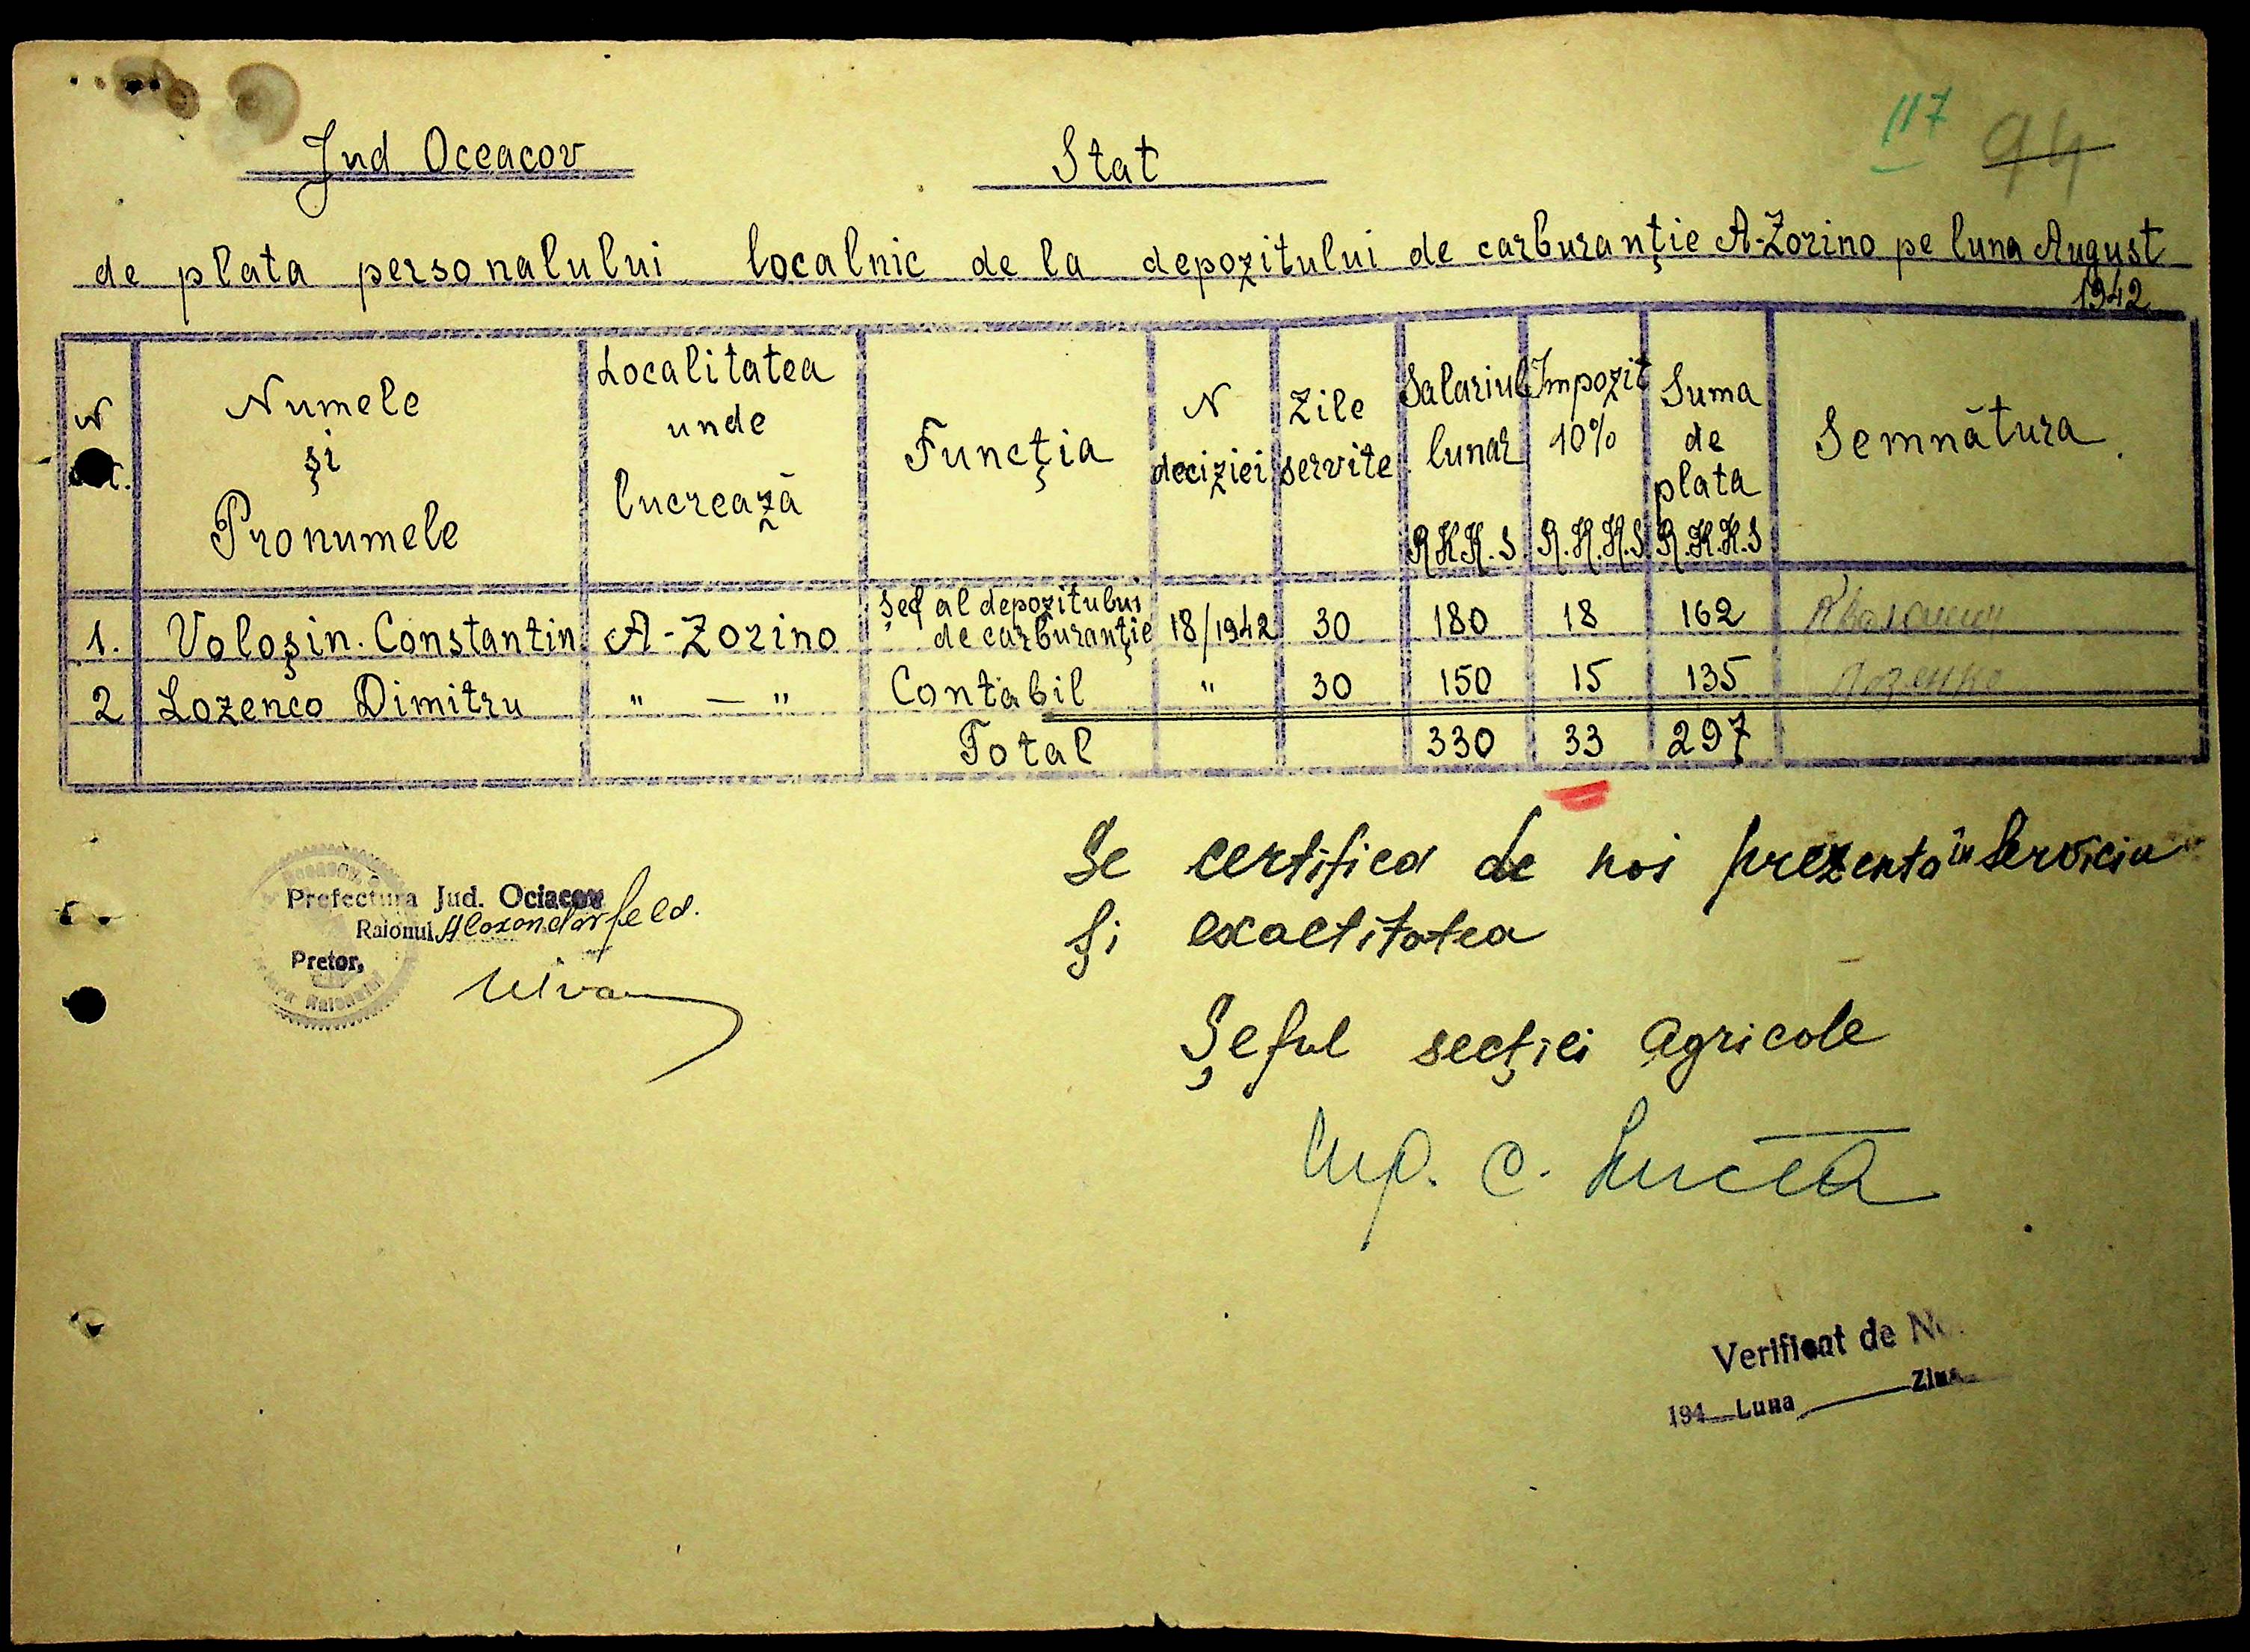 117 94
Jud Oceacov Stat
de plata personalului localnic de la depozitului de carburanţie A-Zorino pe luna August
1942
N Numele şi Pronumele Localitatea unde lucrează Funcţia N deciziei Zile servite Salariul lunar R.K.K.S. Impozit 10% R.K.K.S. Suma de plata R.K.K.S Semnătura.
1. Voloşin. Constantin A-Zorino Şef al depozitului de carburanţie 18/1942 30 180 18 162
2 Lozenco Dimitru " — " Contabil " 30 150 15 135
Total 330 33 297
Se certifica de noi prezenta în serviciu
şi exactitatea
Prefectura Jud. Ociacov
Raionul Alexandarfeld.
Pretor,
Raionului
Şeful secţiei agricole
C.
Verificat de
194 Luna Ziua